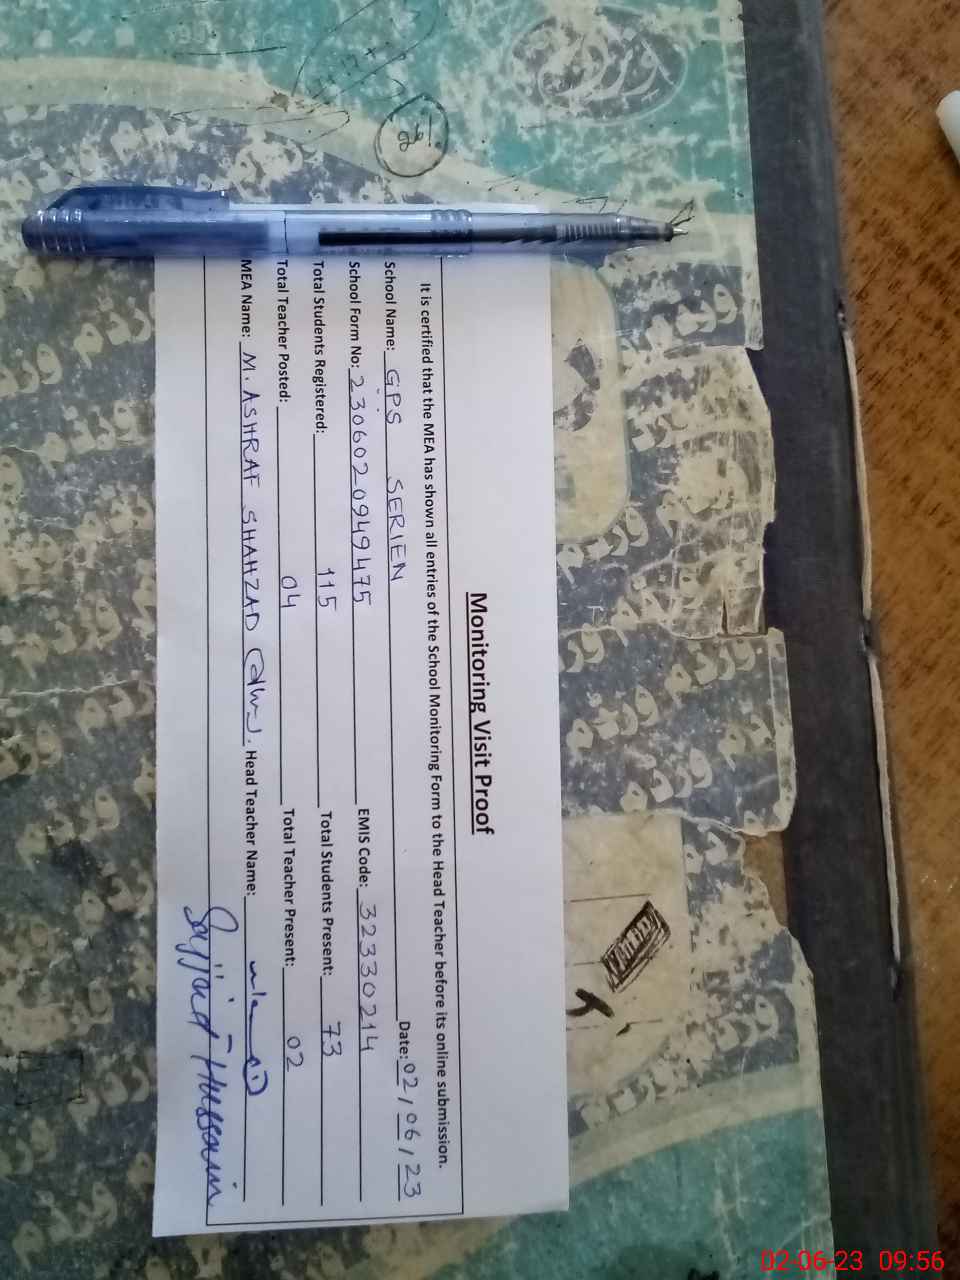 Monitoring Visit Proof
It is certified that the MEA has shown all entries of the School Monitoring Form to the Head Teacher before its online submission.
School Name: GPS SERIEN Date: 02/06/23
School Form No: 2306020949475 EMIS Code: 32330214
Total Students Registered: 115 Total Students Present: 73
Total Teacher Posted: 04 Total Teacher Present: 02
MEA Name: M. ASHRAF SHAHZAD Head Teacher Name:
Sajjad Hussain
02-06-23 09:56